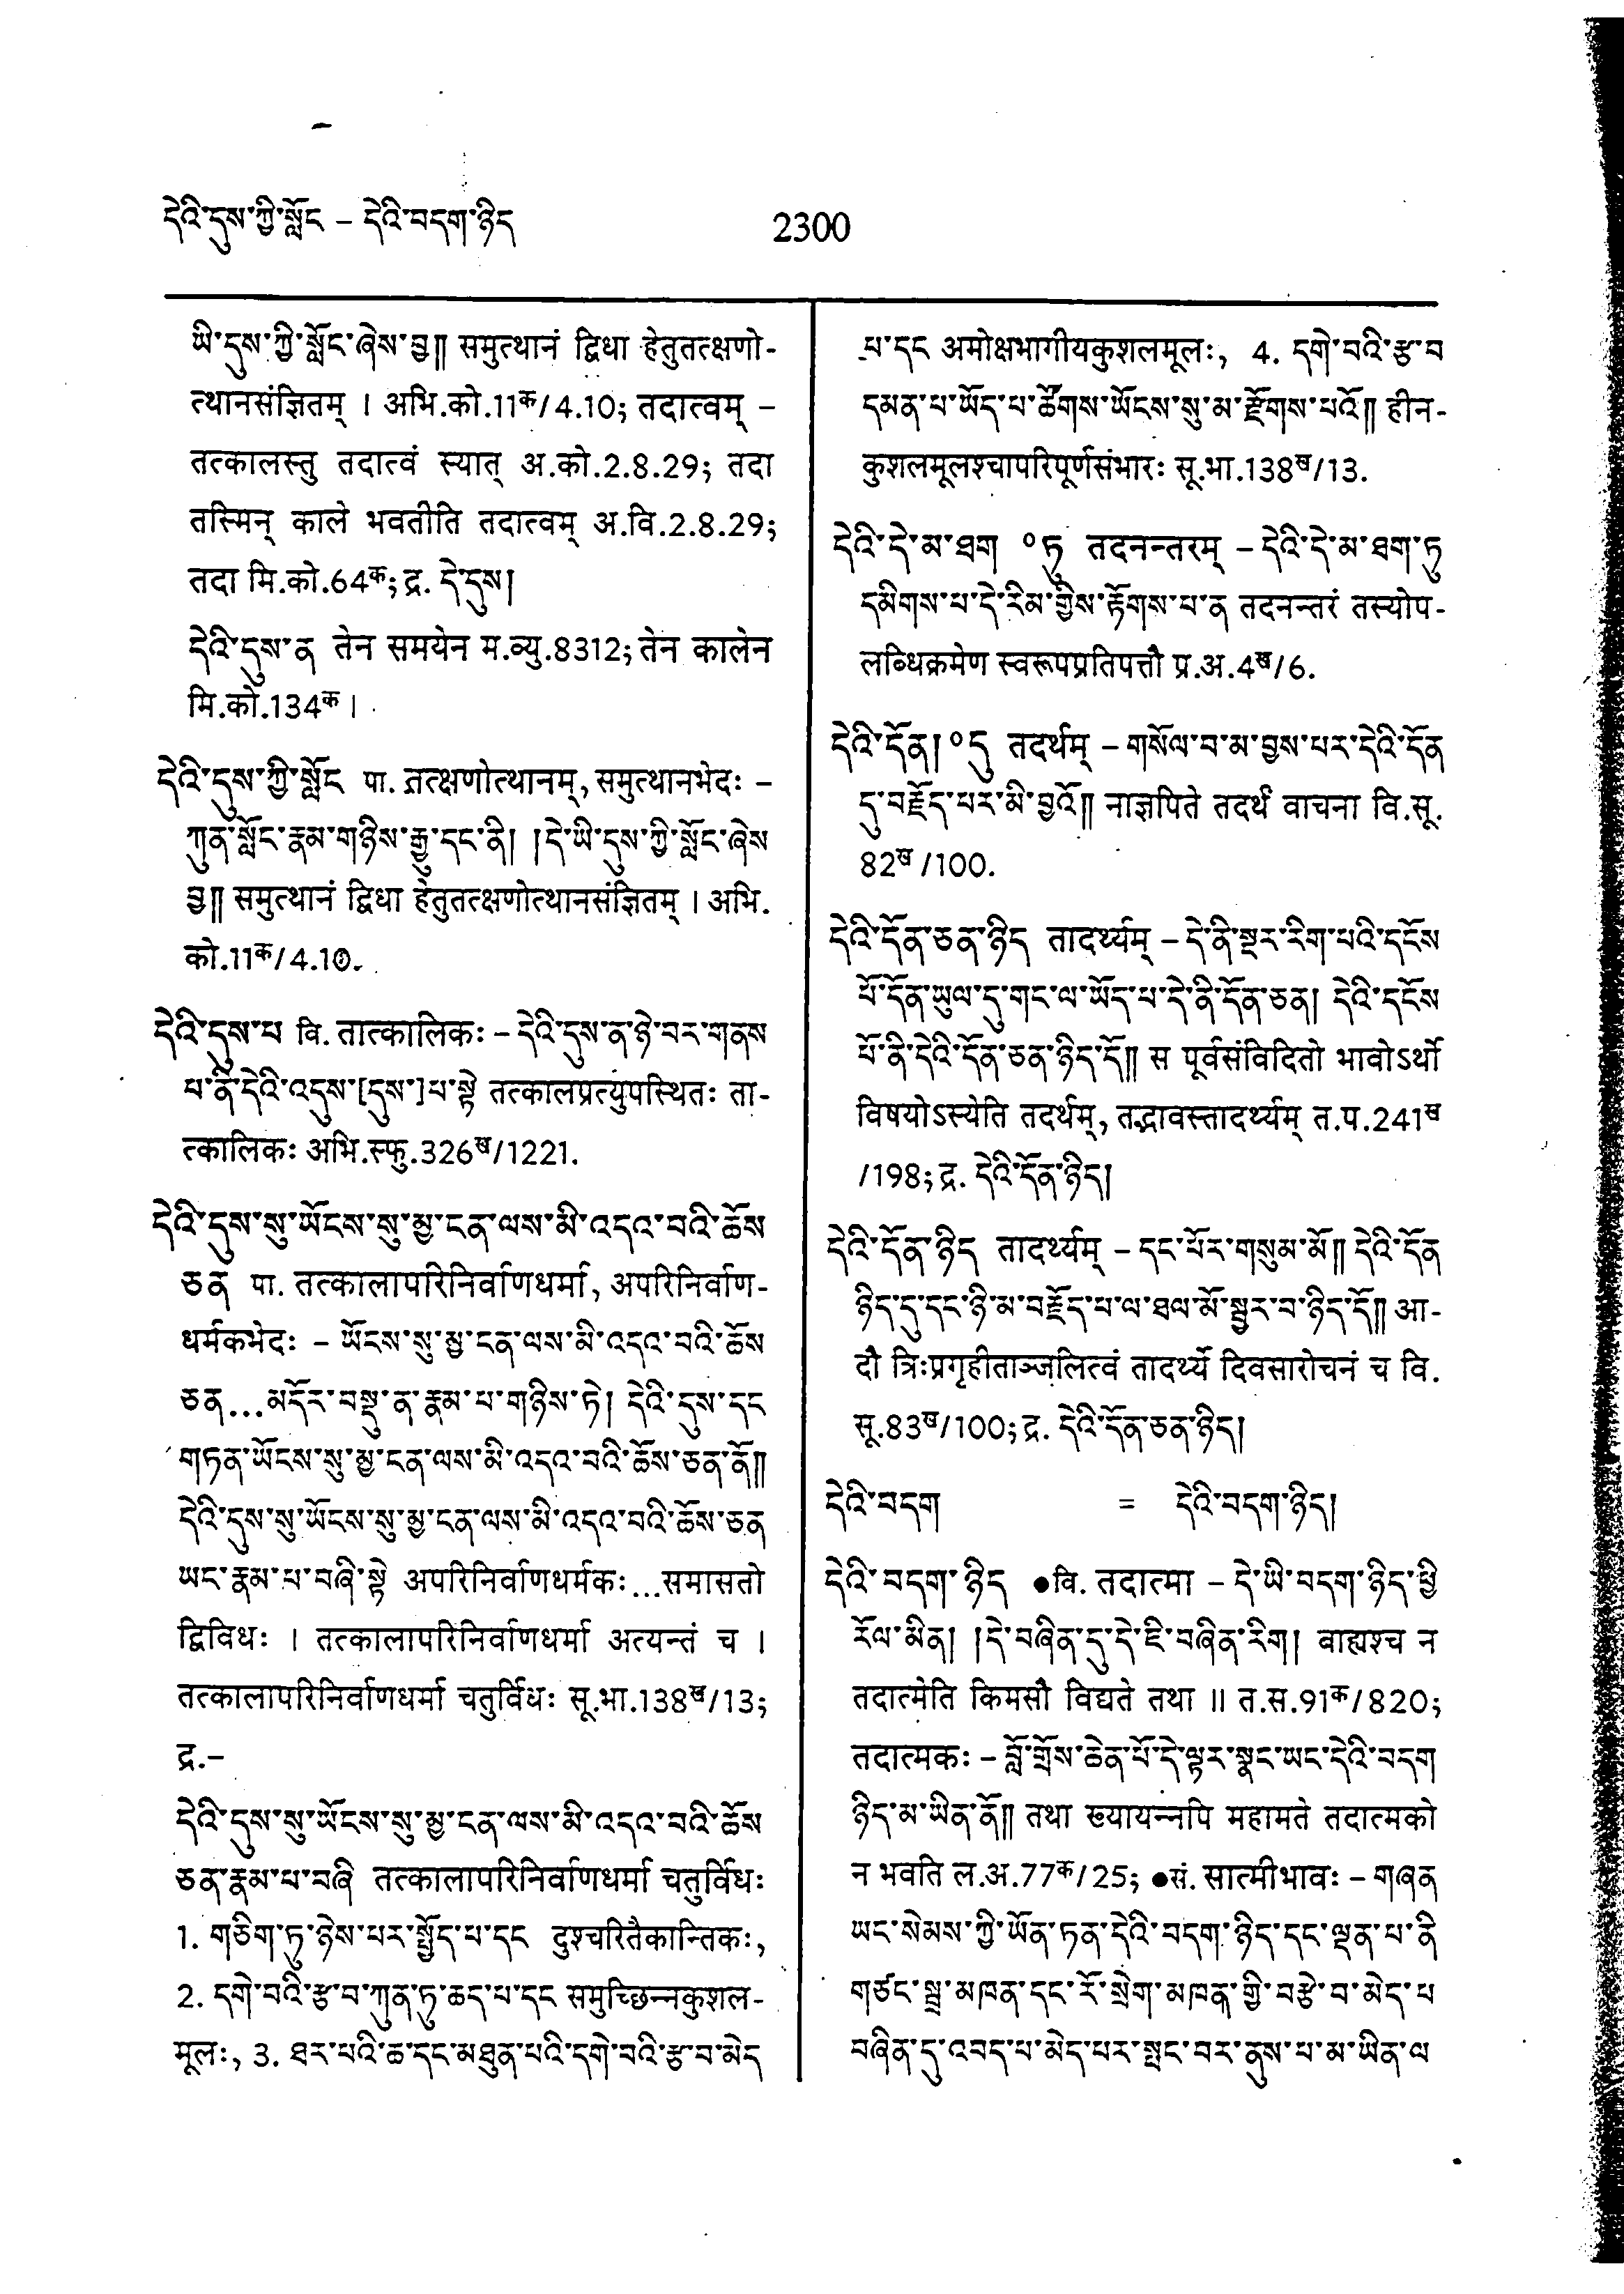 དེའི་དུས་ཀྱི་སློང – དེའི་བདག་ཉིད
2300
ཡི་དུས་ཀྱི་སློང་ཞེས་བྱ༎ समुत्थानं द्विधा हेतुतत्क्षणो-
त्थानसंज्ञितम् । अभि.को.11क/4.10; तदात्वम् –
तत्कालस्तु तदात्वं स्यात् अ.को.2.8.29; तदा
तस्मिन् काले भवतीति तदात्वम् अ.वि.2.8.29;
तदा मि.को.64क; द्र. དེ་དུས།
དེའི་དུས་ན तेन समयेन म.व्यु.8312; तेन कालेन
मि.को.134क ।
དེའི་དུས་ཀྱི་སློང पा. तत्क्षणोत्थानम्, समुत्थानभेदः –
ཀུན་སློང་རྣམ་གཉིས་རྒྱུ་དང་ནི། །དེ་ཡི་དུས་ཀྱི་སློང་ཞེས
བྱ༎ समुत्थानं द्विधा हेतुतत्क्षणोत्थानसंज्ञितम् । अभि.
को.11क/4.10.
དེའི་དུས་པ वि. तात्कालिकः – དེའི་དུས་ན་ཉེ་བར་གནས
པ་ནི་དེའི་འདུས་[དུས་]པ་སྟེ तत्कालप्रत्युपस्थितः ता-
त्कालिकः अभि.स्फु.326ख/1221.
དེའི་དུས་སུ་ཡོངས་སུ་མྱ་ངན་ལས་མི་འདའ་བའི་ཆོས
ཅན पा. तत्कालापरिनिर्वाणधर्मा, अपरिनिर्वाण-
धर्मकभेदः – ཡོངས་སུ་མྱ་ངན་ལས་མི་འདའ་བའི་ཆོས
ཅན...མདོར་བསྡུ་ན་རྣམ་པ་གཉིས་ཏེ། དེའི་དུས་དང
གཏན་ཡོངས་སུ་མྱ་ངན་ལས་མི་འདའ་བའི་ཆོས་ཅན་ནོ༎
དེའི་དུས་སུ་ཡོངས་སུ་མྱ་ངན་ལས་མི་འདའ་བའི་ཆོས་ཅན
ཡང་རྣམ་པ་བཞི་སྟེ अपरिनिर्वाणधर्मकः...समासतो
द्विविधः । तत्कालापरिनिर्वाणधर्मा अत्यन्तं च ।
तत्कालापरिनिर्वाणधर्मा चतुर्विधः सू.भा.138ख/13;
द्र.–
དེའི་དུས་སུ་ཡོངས་སུ་མྱ་ངན་ལས་མི་འདའ་བའི་ཆོས
ཅན་རྣམ་པ་བཞི तत्कालापरिनिर्वाणधर्मा चतुर्विधः
1. གཅིག་ཏུ་ཉེས་པར་སྤྱོད་པ་དང दुश्चरितैकान्तिकः,
2. དགེ་བའི་རྩ་བ་ཀུན་ཏུ་ཆད་པ་དང समुच्छिन्नकुशल-
मूलः, 3. ཐར་པའི་ཆ་དང་མཐུན་པའི་དགེ་བའི་རྩ་བ་མེད
པ་དང अमोक्षभागीयकुशलमूलः, 4. དགེ་བའི་རྩ་བ
དམན་པ་ཡོད་པ་ཚོགས་ཡོངས་སུ་མ་རྫོགས་པའོ༎ हीन-
कुशलमूलश्चापरिपूर्णसंभारः सू.भा.138ख/13.
དེའི་དེ་མ་ཐག °ཏུ तदनन्तरम् – དེའི་དེ་མ་ཐག་ཏུ
དམིགས་པ་དེ་རིམ་གྱིས་རྟོགས་པ་ན तदनन्तरं तस्योप-
लब्धिक्रमेण स्वरूपप्रतिपत्तौ प्र.अ.4ख/6.
དེའི་དོན། °དུ तदर्थम् – གསོལ་བ་མ་བྱས་པར་དེའི་དོན
དུ་བརྗོད་པར་མི་བྱའོ༎ नाज्ञपिते तदर्थं वाचना वि.सू.
82ख/100.
དེའི་དོན་ཅན་ཉིད तादर्थ्यम् – དེ་ནི་སྔར་རིག་པའི་དངོས
པོ་དོན་ཡུལ་དུ་གང་ལ་ཡོད་པ་དེ་ནི་དོན་ཅན། དེའི་དངོས
པོ་ནི་དེའི་དོན་ཅན་ཉིད་དོ༎ स पूर्वसंविदितो भावोऽर्थो
विषयोऽस्येति तदर्थम्, तद्भावस्तादर्थ्यम् त.प.241ख
/198; द्र. དེའི་དོན་ཉིད།
དེའི་དོན་ཉིད तादर्थ्यम् – དང་པོར་གསུམ་མོ༎ དེའི་དོན
ཉིད་དུ་དང་ཉི་མ་བརྗོད་པ་ལ་ཐལ་མོ་སྦྱར་བ་ཉིད་དོ༎ आ-
दौ त्रिःप्रगृहीताञ्जलित्वं तादर्थ्ये दिवसारोचनं च वि.
सू.83ख/100; द्र. དེའི་དོན་ཅན་ཉིད།
དེའི་བདག = དེའི་བདག་ཉིད།
དེའི་བདག་ཉིད ●वि. तदात्मा – དེ་ཡི་བདག་ཉིད་ཕྱི
རོལ་མིན། །དེ་བཞིན་དུ་དེ་ཇི་བཞིན་རིག། वाह्यश्च न
तदात्मेति किमसौ विद्यते तथा ॥ त.स.91क/820;
तदात्मकः – བློ་གྲོས་ཆེན་པོ་དེ་ལྟར་སྣང་ཡང་དེའི་བདག
ཉིད་མ་ཡིན་ནོ༎ तथा ख्यायन्नपि महामते तदात्मको
न भवति ल.अ.77क/25; ●सं. सात्मीभावः – གཞན
ཡང་སེམས་ཀྱི་ཡོན་ཏན་དེའི་བདག་ཉིད་དང་ལྡན་པ་ནི
གཙང་སྦྲ་མཁན་དང་རོ་སྲེག་མཁན་གྱི་བརྩེ་བ་མེད་པ
བཞིན་དུ་འབད་པ་མེད་པར་སྤང་བར་ནུས་པ་མ་ཡིན་ལ